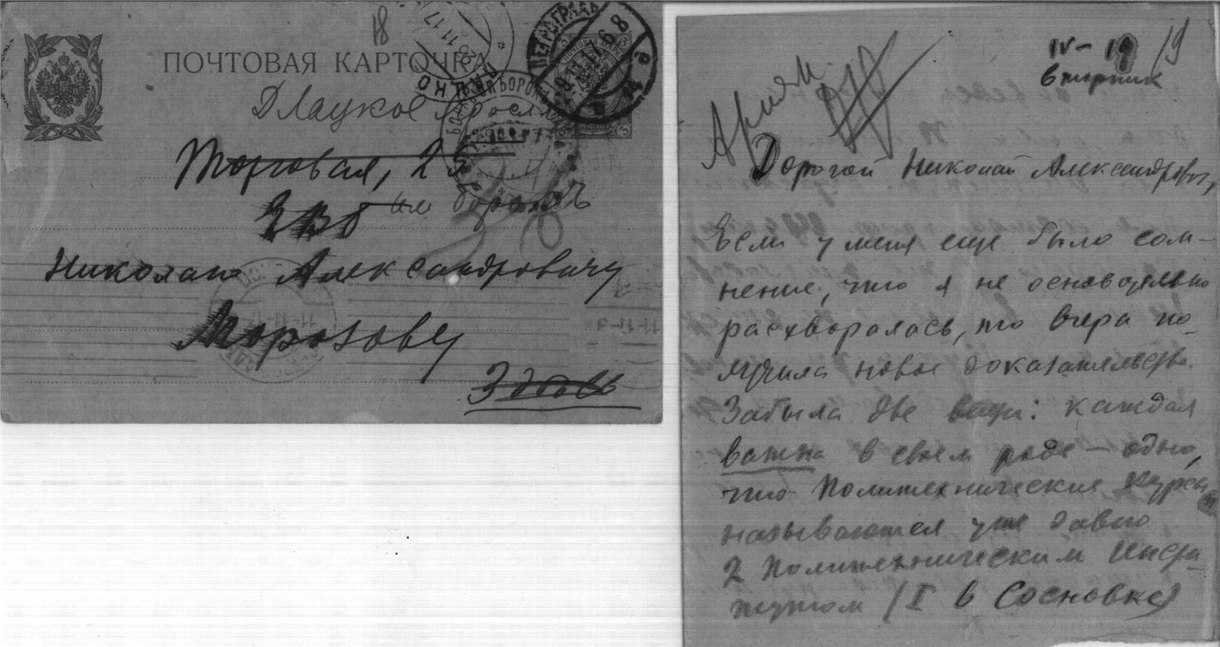 18
ПОЧТОВАЯ КАРТОЧКА
ПЕТРОГРАДЪ
11.17.6.8
23.11.17
Д Лацкое
Торговая, 25
ЕВБ
им Борокъ
Николаю Александровичу
Морозову
Здесь
IV – 19 19
вторник
Дорогой Николай Александрович,
Если у меня еще было сом-
нение, что я не основательно
расхворалась, то вчера по-
лучила новое доказательство.
Забыла две вещи: каждая
важна в своем роде – одно,
что Политехнические Курсы
называются уже давно
2 Политехническим Инсти-
тутом (I в Сосновке)